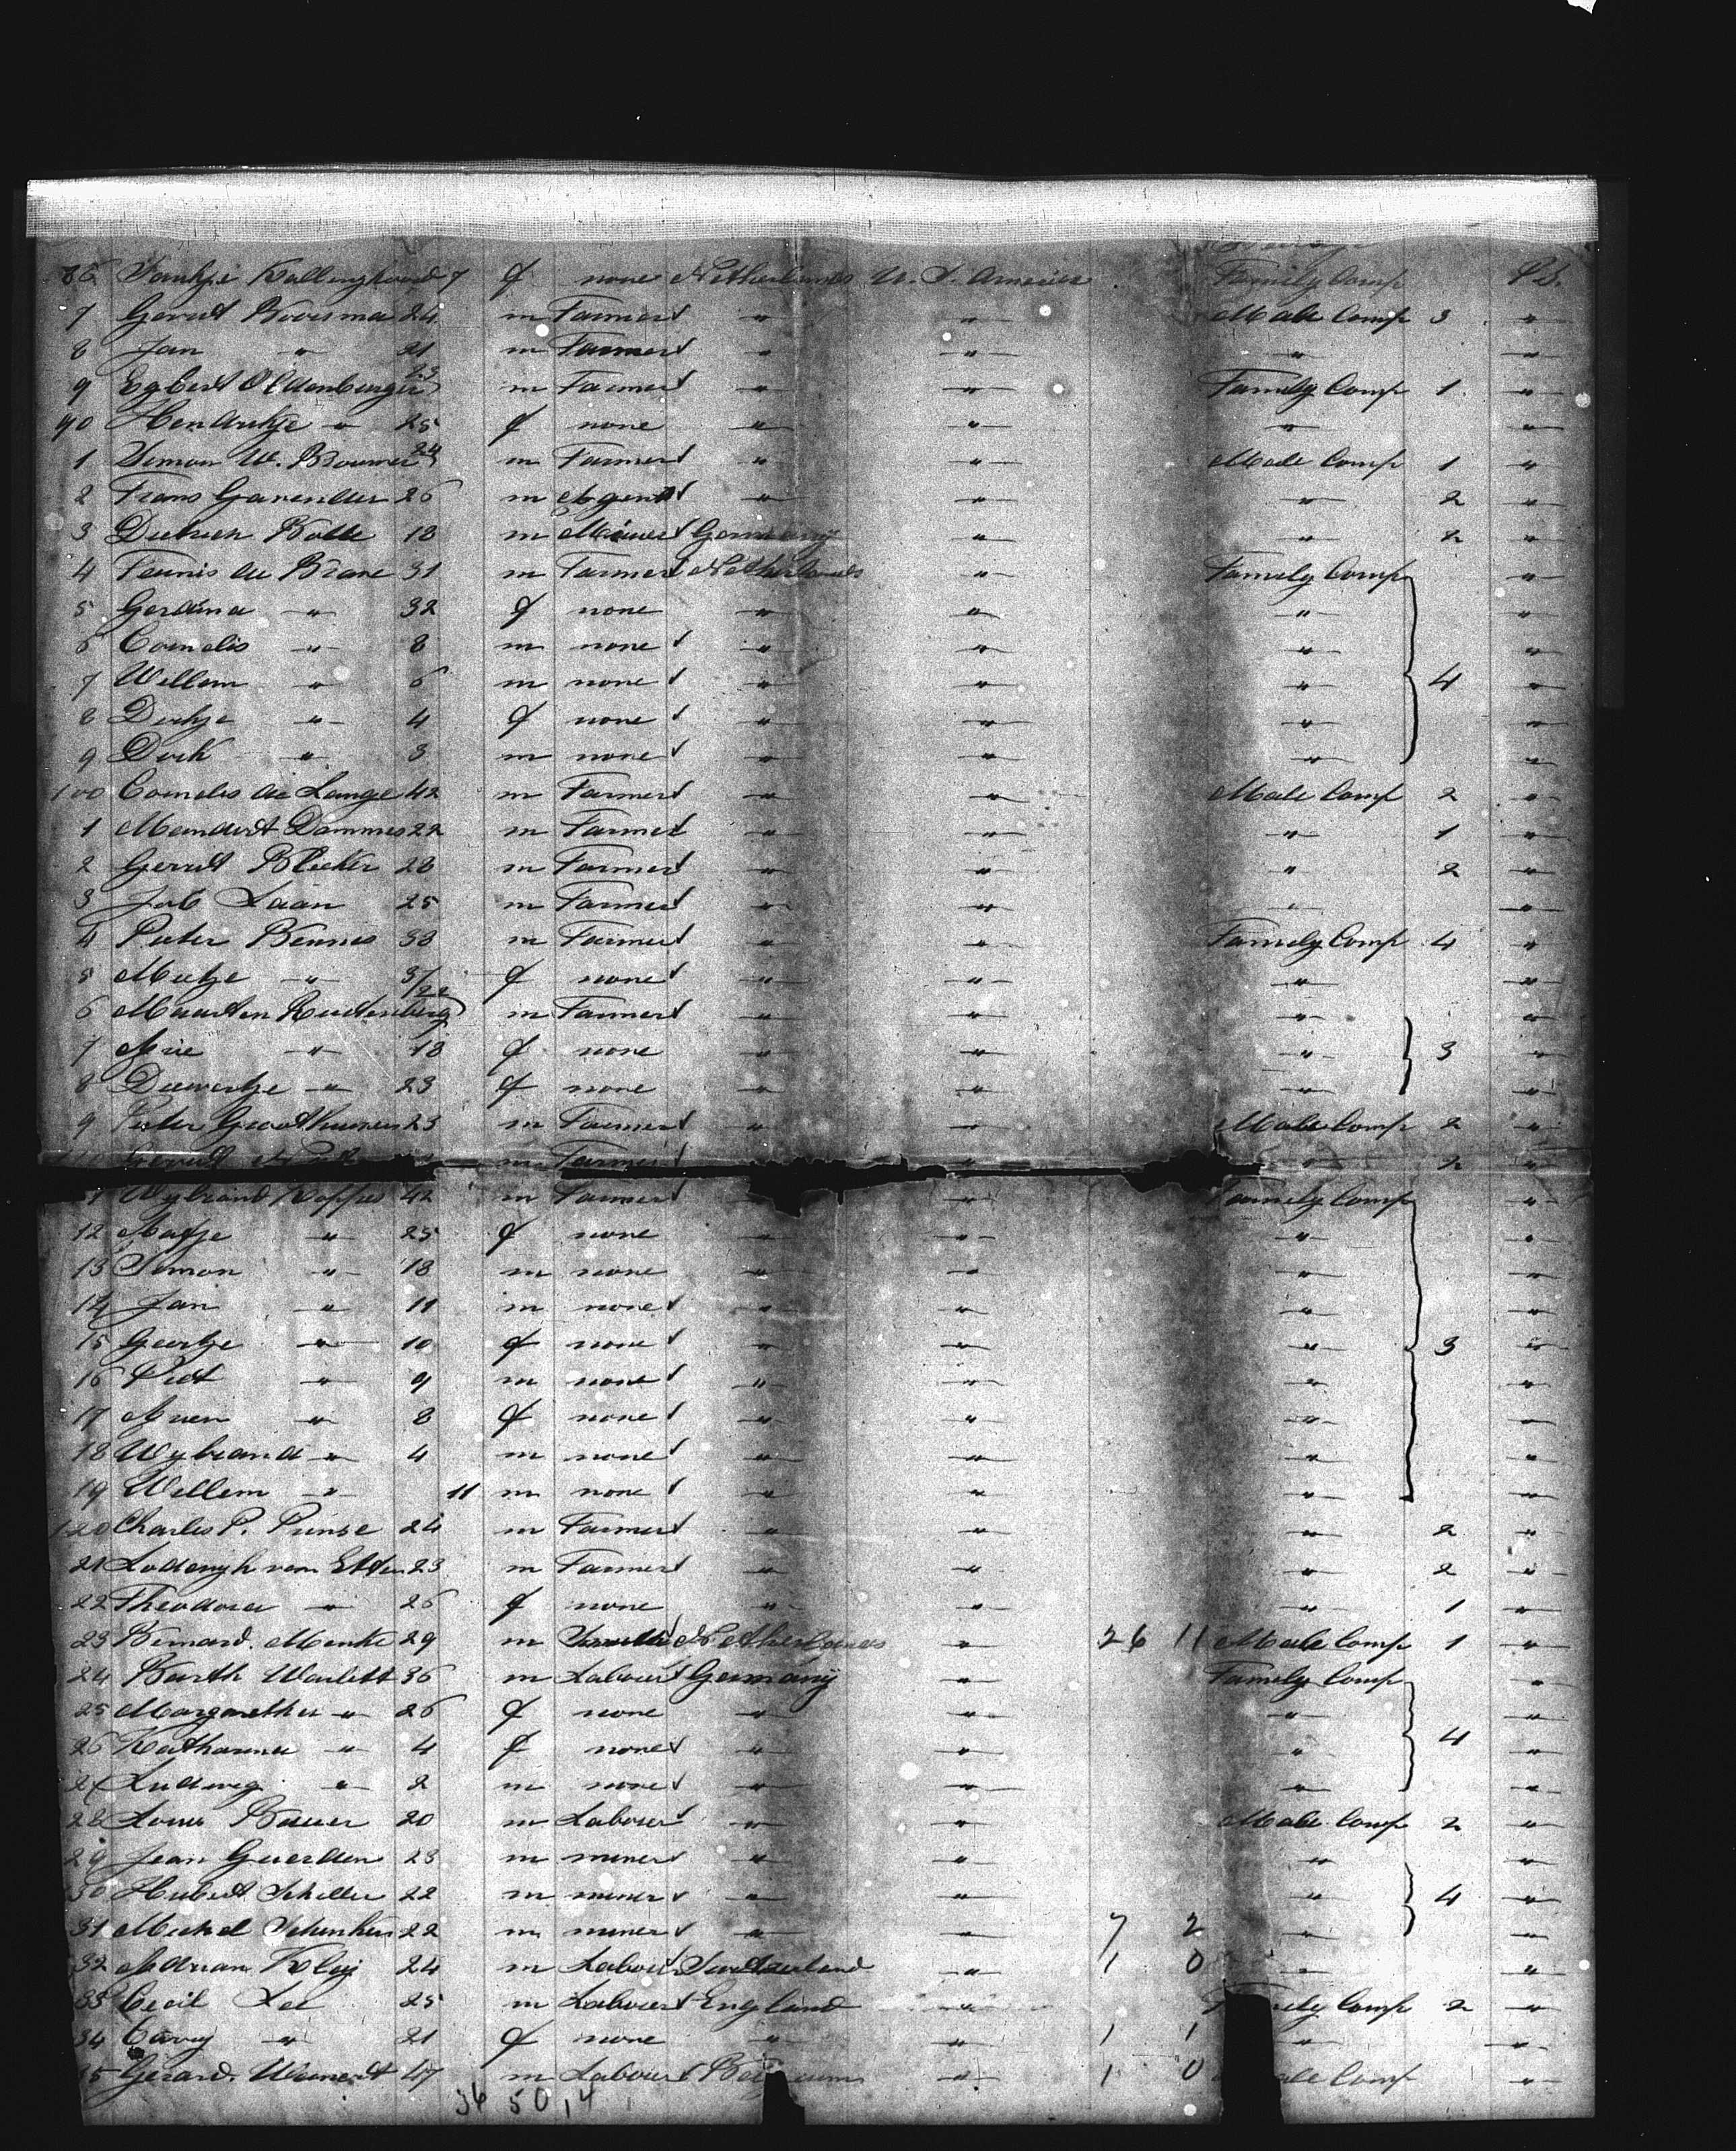 86 Kallinghoud 7 f none Netherlands U. S. America Family Comp P.S.
7 Gerrit Boersma 24 m Farmer " " Male Comp 3 "
8 Jan " 21 m Farmer " " " "
9 Egbert Oldenburger 23 m Farmer " " Family Comp 1 "
90 Hendrikje " 25 f none " " " "
1 Simon W. Brouwer 24 m Farmer " " Male Comp 1 "
2 Frans 26 m Agent " " " 2 "
3 Dietrich 18 m Miner Germany " " 2 "
4 Teunis de 31 m Farmer Netherlands " Family Comp "
5 Gerdina " 32 f none " " " "
6 Cornelis " 8 m none " " " "
7 Willem " 6 m none " " " 4 "
8 Dirkje " 4 f none " " " "
9 Dirk " 3 m none " " " "
100 Cornelis de Lange 42 m Farmer " " Male Comp 2 "
1 Meindert Dammes 22 m Farmer " " " 1 "
2 Gerrit Bleeker 28 m Farmer " " " 2 "
3 Job Laan 25 m Farmer " " " "
4 Pieter Bennis 38 m Farmer " " Family Comp 4 "
5 " f none " " " "
6 Maarten 22 m Farmer " " " "
7 " 18 f none " " " 3 "
8 Dieuwertje " 23 f none " " " "
9 Pieter Groothuizen 23 m Farmer " " Male Comp 2 "
Gerrit m Farmer " " 2 "
Wybrand Koppes 42 m Farmer " Family Comp "
12 " 25 f none " " " "
13 Simon " 18 m none " " " "
14 Jan " 11 m none " " " "
15 Geertje " 10 f none " " " 3 "
16 Piet " 9 m none " " " "
17 " 8 f none " " " "
18 Wybrand " 4 m none " " " "
19 Willem " 11 m none " " " "
120 Charles P. 24 m Farmer " " " 2 "
21 Lodewyk van Etten 23 m Farmer " " " 2 "
22 Theodora " 26 f none " " " 1 "
23 Bernard Menke 29 m Netherlands " 26 11 Male Comp 1 "
24 Barth 36 m Labourer Germany " Family Comp "
25 Margaretha " 26 f none " " " "
26 Katharina " 4 f none " " " 4 "
27 Ludwig " 2 m none " " " "
28 Louis Bauer 20 m Labourer " " Male Comp 2 "
29 Jean 23 m miner " " " "
30 Hubert Schiller 22 m miner " " " 4 "
31 Michel 22 m miner " " 7 2 " "
32 Adrian 24 m Labourer Switzerland " 1 0 " "
33 Cecil Lee 25 m Labourer England " Family Comp 2 "
34 " 21 f none " " 1 1 " "
35 Gerard 47 m Labourer Belgium " 1 0 Male Comp "
36 50 14